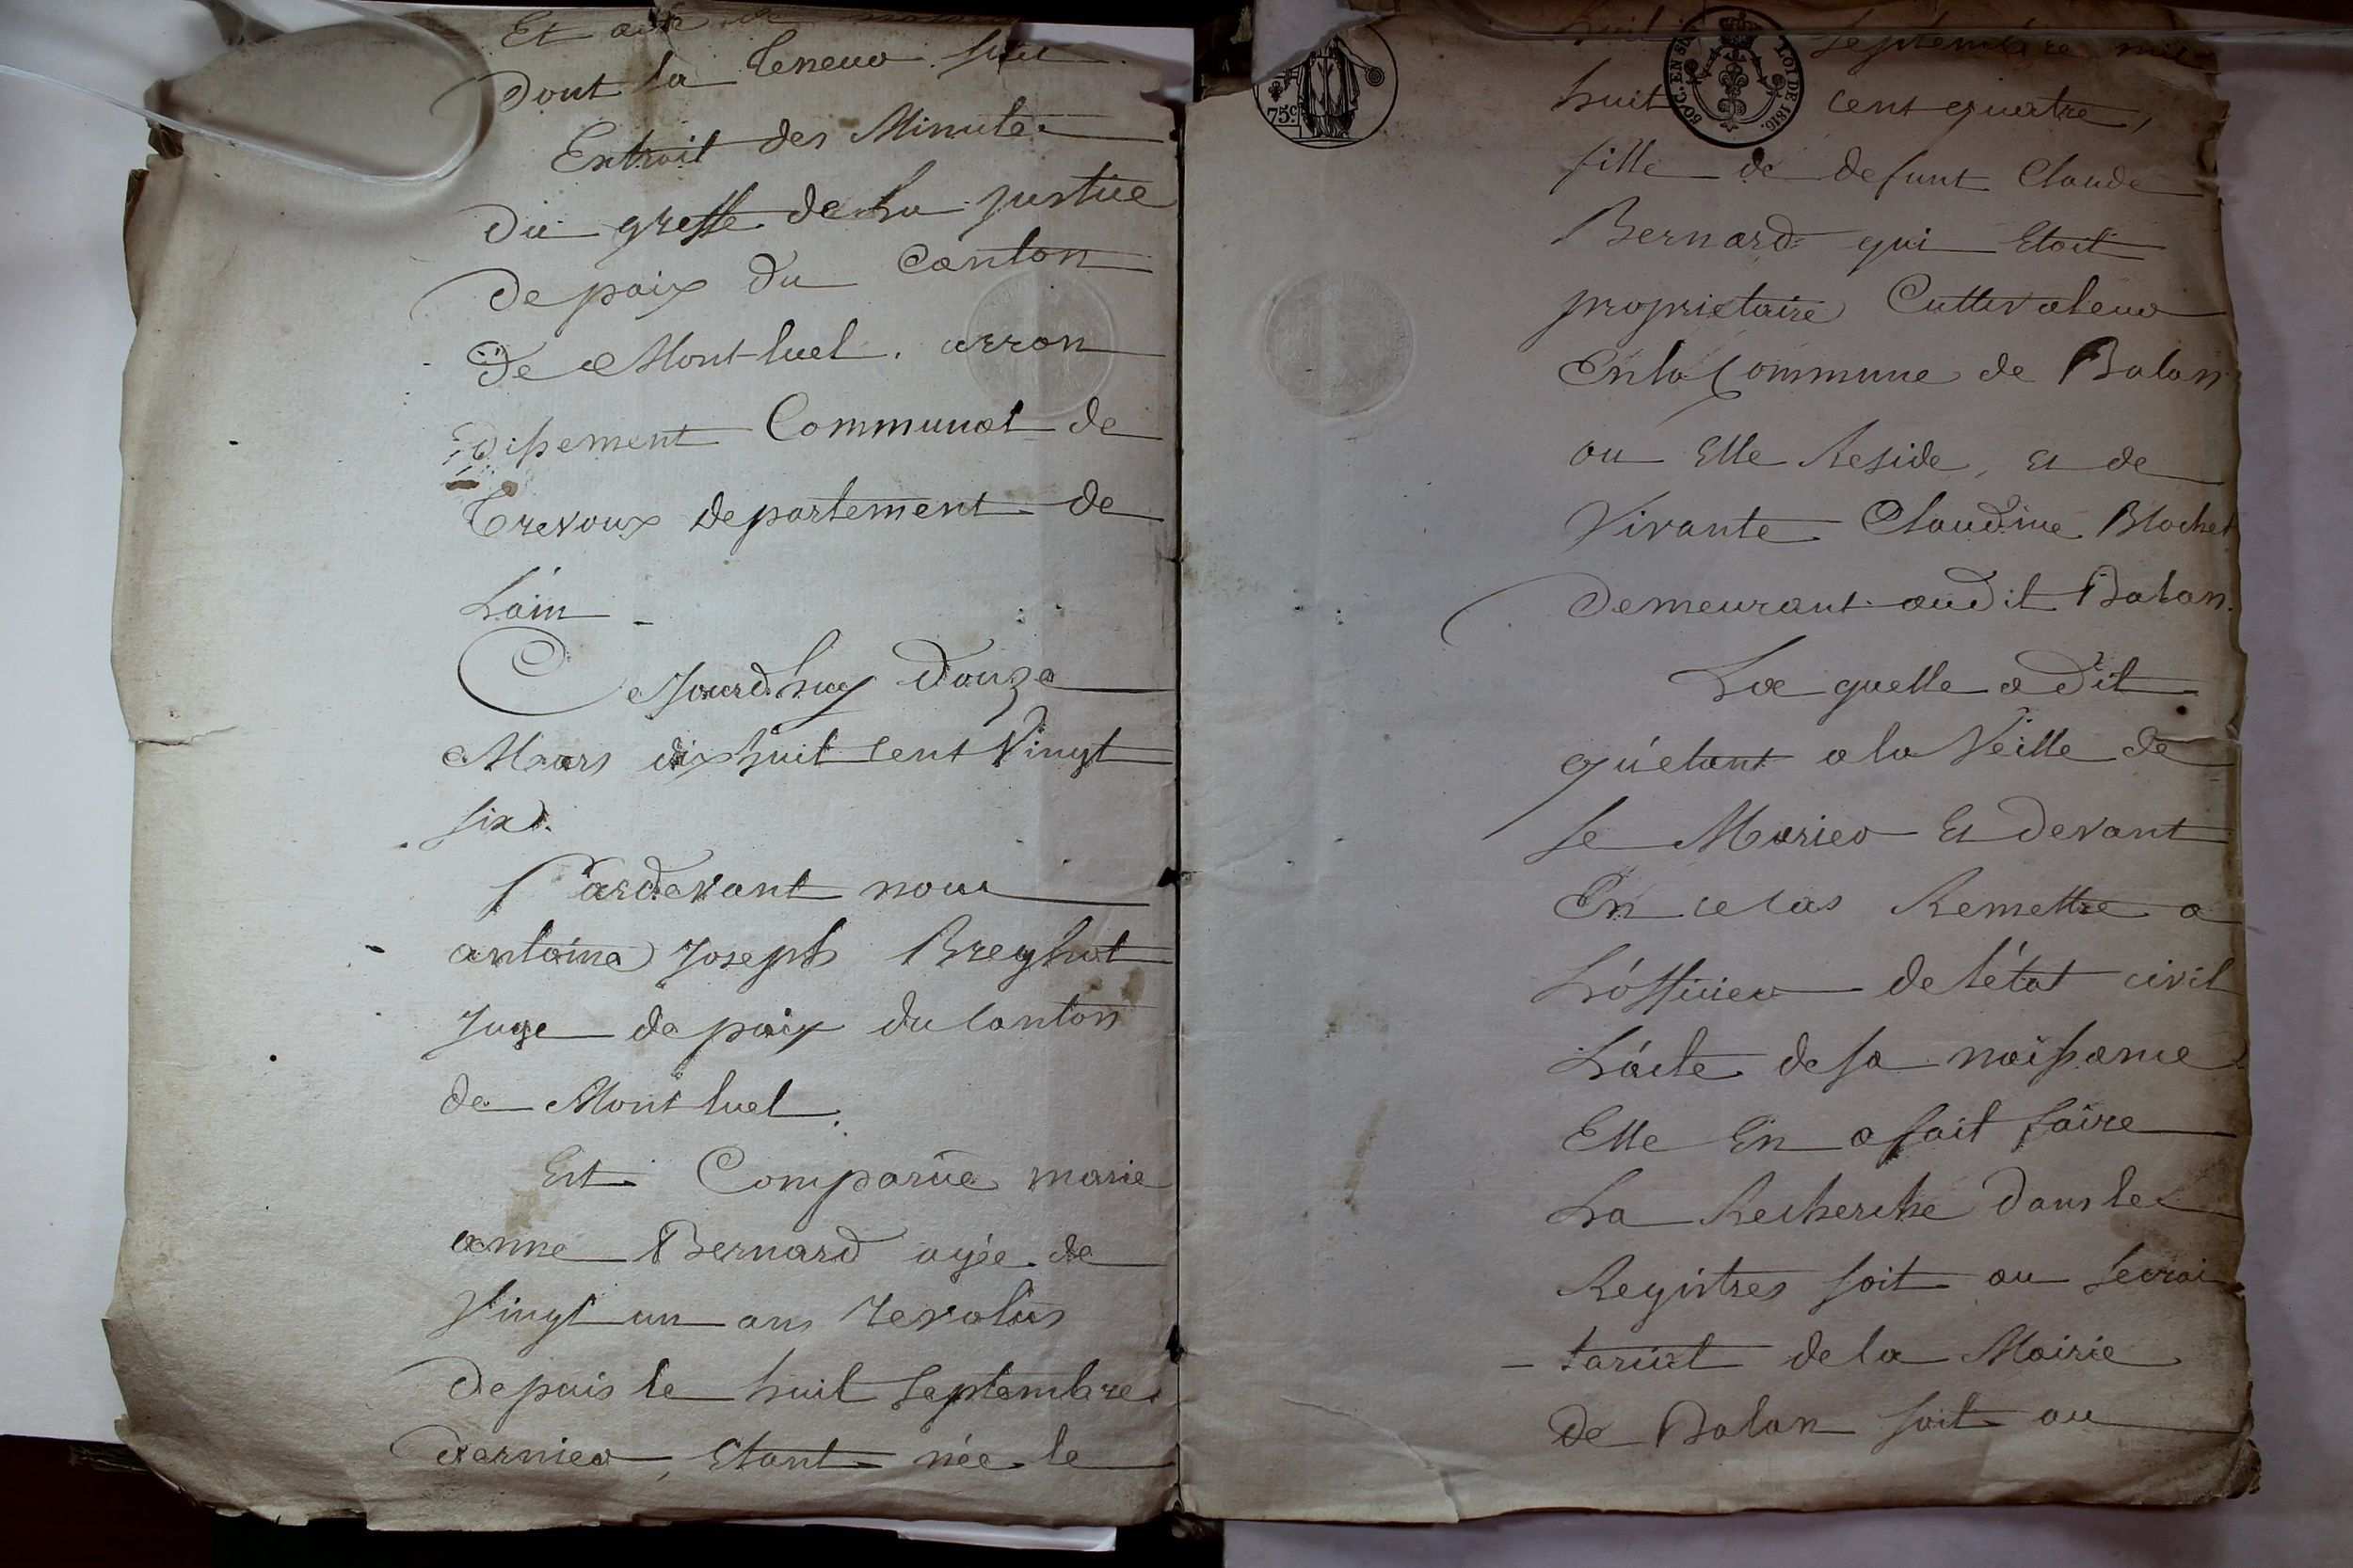 Et acte de
dont la Teneur suit
Extrait des Minutes
du greffe de La justice
de paix du Canton
de Montluel. arron
dissement Communal de
Trevoux departement de
Lain
Cejourdhuy douze
Mars dix huit cent Vingt
six.
Pardevant nous
antoine Joseph Breghot
Juge de paix du canton
de Montluel.
Est Comparüe marie
anne Bernard agée de
Vingt un ans revolus
depuis le huit Septembre
dernier, Etant née le
huit Septembre mil
75c.
50 C. EN SUS LOI DE 1816.
huit cent quatre,
fille de defunt Claude
Bernard qui Etoit
proprietaire Cultivateur
En la Commune de Balan
ou Elle Reside, Et de
Vivante Claudine Blochet
demeurant audit Balan.
La quelle a dit
qu'etant a la Veille de
se Marier Et devant
En ce cas Remettre a
L'officier de l'état civil
L'acte de sa naissance
Elle En a fait faire
La Recherche dans les
Registres soit au Secrai
- tariat de la Mairie
de Balan soit au